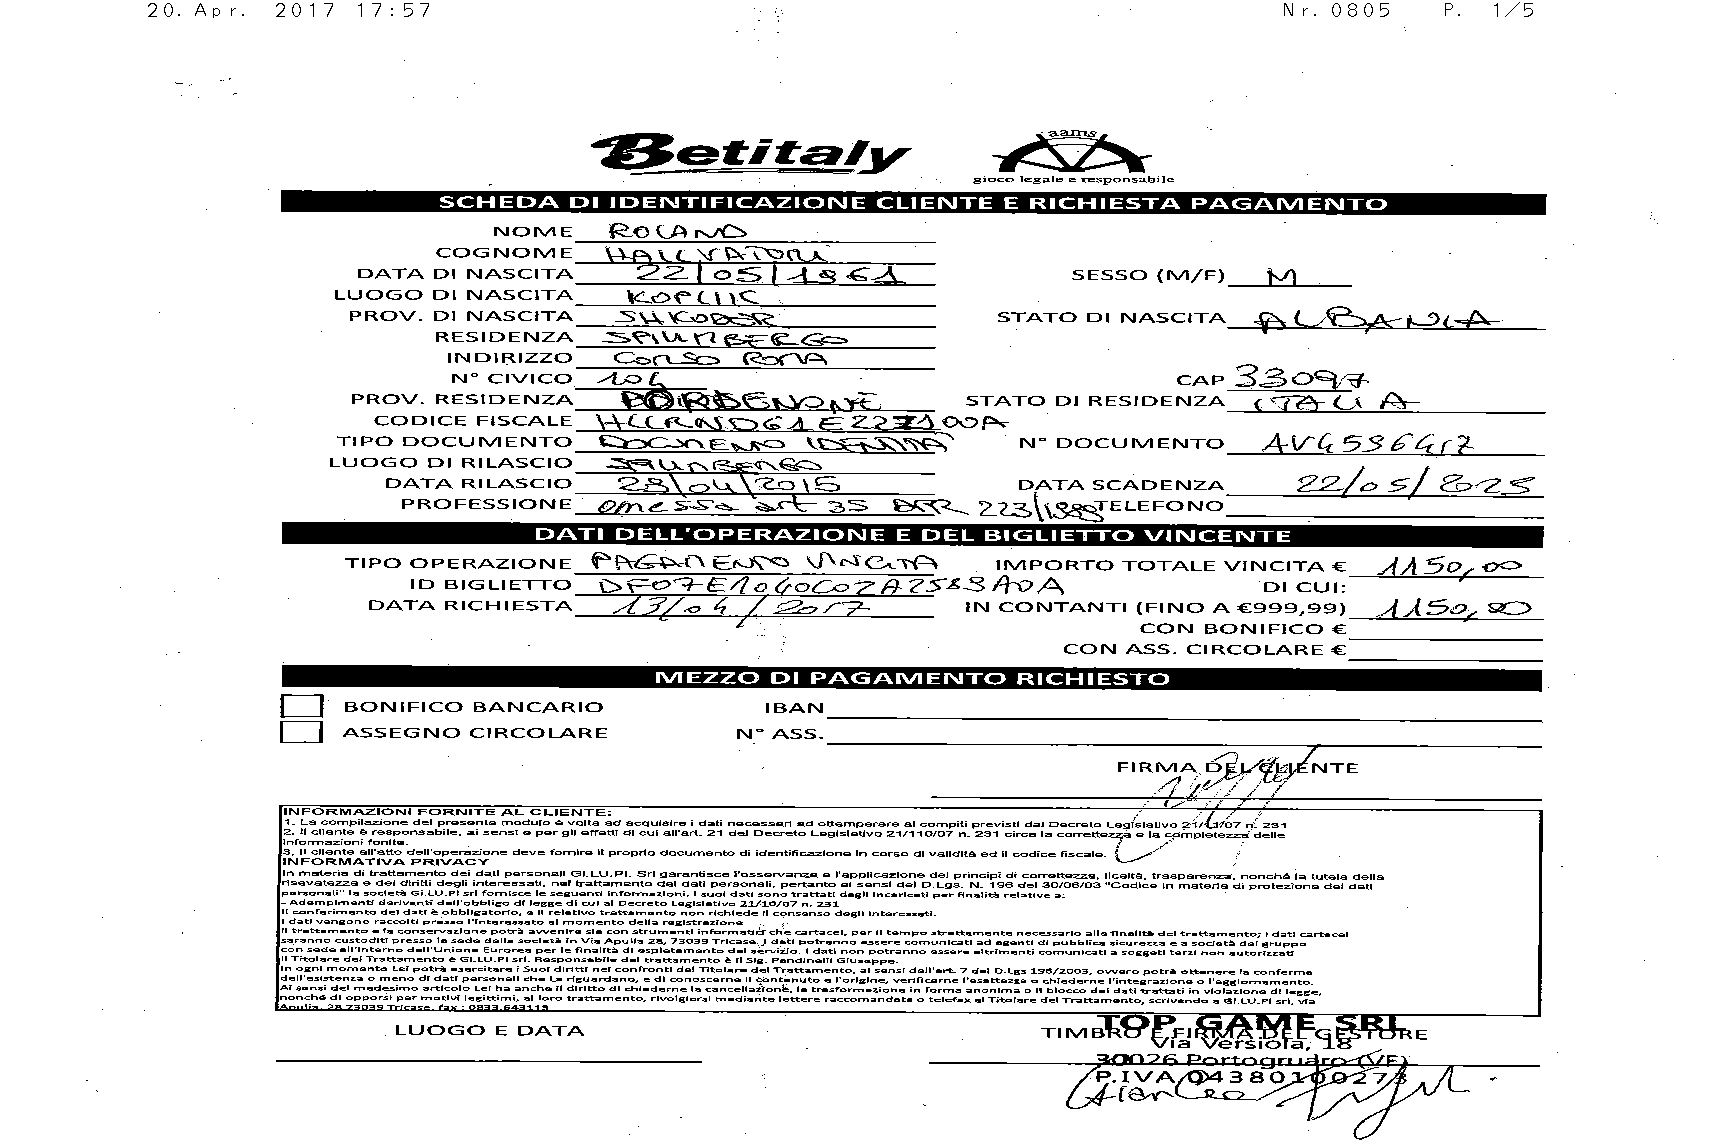 20. Apr. 2017 17:57 Nr. 0805 P. 1/5
Betitaly
aams
gioco legale e responsabile
SCHEDA DI IDENTIFICAZIONE CLIENTE E RICHIESTA PAGAMENTO
NOME ROLAND
COGNOME
DATA DI NASCITA 22/05/1961 SESSO (M/F) M
LUOGO DI NASCITA KOPLIK
PROV. DI NASCITA SHKODER STATO DI NASCITA ALBANIA
RESIDENZA SPILIMBERGO
INDIRIZZO CORSO ROMA
N° CIVICO 104 CAP 33097
PROV. RESIDENZA PORDENONE STATO DI RESIDENZA ITALIA
CODICE FISCALE
TIPO DOCUMENTO N° DOCUMENTO
LUOGO DI RILASCIO SPILIMBERGO
DATA RILASCIO 28/04/2015 DATA SCADENZA 22/05/2025
PROFESSIONE omessa art 35 DPR 223/1989 TELEFONO
DATI DELL'OPERAZIONE E DEL BIGLIETTO VINCENTE
TIPO OPERAZIONE PAGAMENTO VINCITA IMPORTO TOTALE VINCITA € 1150,00
ID BIGLIETTO DF07E1040C02A2583A0A DI CUI:
DATA RICHIESTA 13/04/2017 IN CONTANTI (FINO A €999,99) 1150,00
CON BONIFICO €
CON ASS. CIRCOLARE €
MEZZO DI PAGAMENTO RICHIESTO
BONIFICO BANCARIO IBAN
ASSEGNO CIRCOLARE N° ASS.
FIRMA DEL CLIENTE
INFORMAZIONI FORNITE AL CLIENTE:
1. La compilazione del presente modulo è volta ad acquisire i dati necessari ad ottemperare ai compiti previsti dal Decreto Legislativo 21/11/07 n. 231
2. Il cliente è responsabile, ai sensi e per gli effetti di cui all'art. 21 del Decreto Legislativo 21/110/07 n. 231 circa la correttezza e la completezza delle
informazioni fonite.
3. Il cliente all'atto dell'operazione deve fornire il proprio documento di identificazione in corso di validità ed il codice fiscale.
INFORMATIVA PRIVACY
In materia di trattamento dei dati personali GI.LU.PI. Srl garantisce l'osservanza e l'applicazione dei principi di correttezza, liceità, trasparenza, nonchè la tutela della
risevatezza e dei diritti degli interessati, nel trattamento dei dati personali, pertanto ai sensi del D.Lgs. N. 196 del 30/06/03 "Codice in materia di protezione dei dati
personali" la società GI.LU.PI srl fornisce le seguenti informazioni. I suoi dati sono trattati dagli incaricati per finalità relative a:
- Adempimenti derivanti dell'obbligo di legge di cui al Decreto Legislativo 21/10/07 n. 231
Il conferimento dei dati è obbligatorio, e il relativo trattamento non richiede il consenso degli interessati.
I dati vengono raccolti presso l'interessato al momento della registrazione
Il trattamento e la conservazione potrà avvenire sia con strumenti informatici che cartacei, per il tempo strettamente necessario alle finalità del trattamento; i dati cartacei
saranno custoditi presso la sede della società in Via Apulia 28, 73039 Tricase. I dati potranno essere comunicati ad agenti di pubblica sicurezza e a società del gruppo
con sede all'interno dell'Unione Europea per le finalità di espletamento del servizio. I dati non potranno essere altrimenti comunicati a soggeti terzi non autorizzati
Il Titolare del Trattamento è GI.LU.PI srl. Responsabile del trattamento è il Sig. Pandinelli Giuseppe.
In ogni momento Lei potrà esercitare i Suoi diritti nei confronti del Titolare del Trattamento, ai sensi dell'art. 7 del D.Lgs 196/2003, ovvero potrà ottenere la conferma
dell'esistenza o meno di dati personali che La riguardano, e di conoscerne il contenuto e l'origine, verificarne l'esattezza o chiederne l'integrazione o l'aggiornamento.
Ai sensi del medesimo articolo Lei ha anche il diritto di chiederne la cancellazione, la trasformazione in forma anonima o il blocco dei dati trattati in violazione di legge,
nonchè di opporsi per motivi legittimi, al loro trattamento, rivolgiersi mediante lettere raccomandate o telefax al Titolare del Trattamento, scrivendo a GI.LU.PI srl, via
Apulia, 28 73039 Tricase, fax : 0833.643119
LUOGO E DATA TIMBRO E FIRMA DEL GESTORE
TOP GAME SRL
Via Versiola, 18
30026 Portogruaro (VE)
P.IVA 04380100273